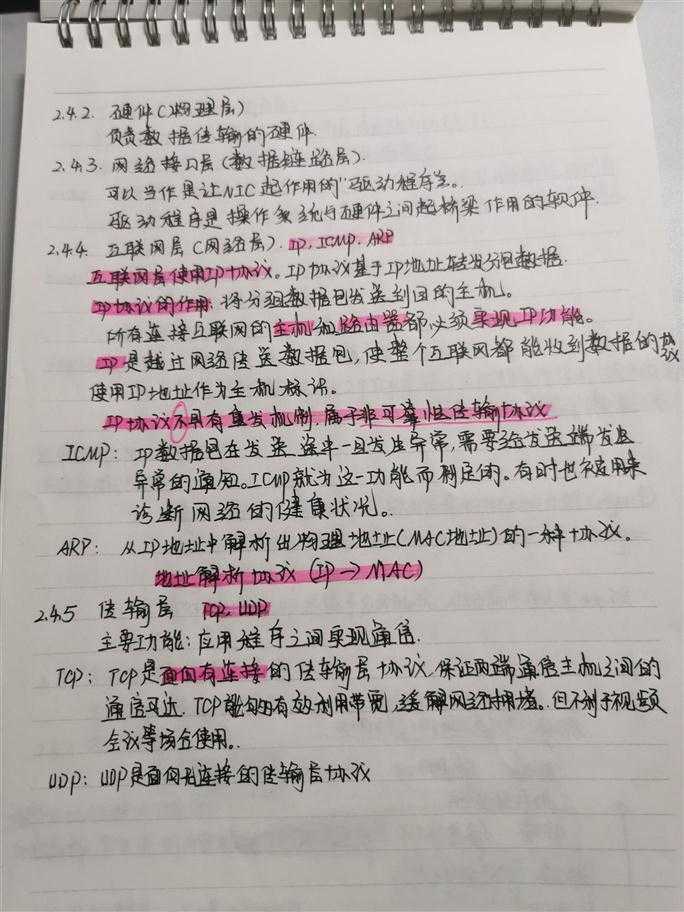 2.4.2. 硬件(物理层)
负责数据传输的硬件.
2.4.3. 网络接口层(数据链路层).
可以当作是让NIC起作用的“驱动程序”。
驱动程序是操作系统与硬件之间起桥梁作用的软件.
2.4.4. 互联网层(网络层). IP. ICMP. ARP
互联网层使用IP协议。IP协议基于IP地址转发分包数据.
IP协议的作用: 将分组数据包发送到目的主机。
所有连接互联网的主机和路由器都必须实现IP功能。
IP是越过网络传送数据包, 使整个互联网都能收到数据的协议
使用IP地址作为主机标识。
IP协议不具有重发机制. 属于非可靠性传输协议
ICMP: IP数据包在发送途中一旦发生异常, 需要给发送端发出
异常的通知。ICMP就为这一功能而制定的。有时也被用来
诊断网络的健康状况。
ARP: 从IP地址中解析出物理地址(MAC地址)的一种协议。
地址解析协议 (IP → MAC)
2.4.5 传输层 TCP. UDP
主要功能: 应用程序之间实现通信.
TCP: TCP是面向有连接的传输层协议. 保证两端通信主机之间的
通信可达. TCP能够有效利用带宽, 缓解网络拥堵。但不利于视频
会议等场合使用。
UDP: UDP是面向无连接的传输层协议